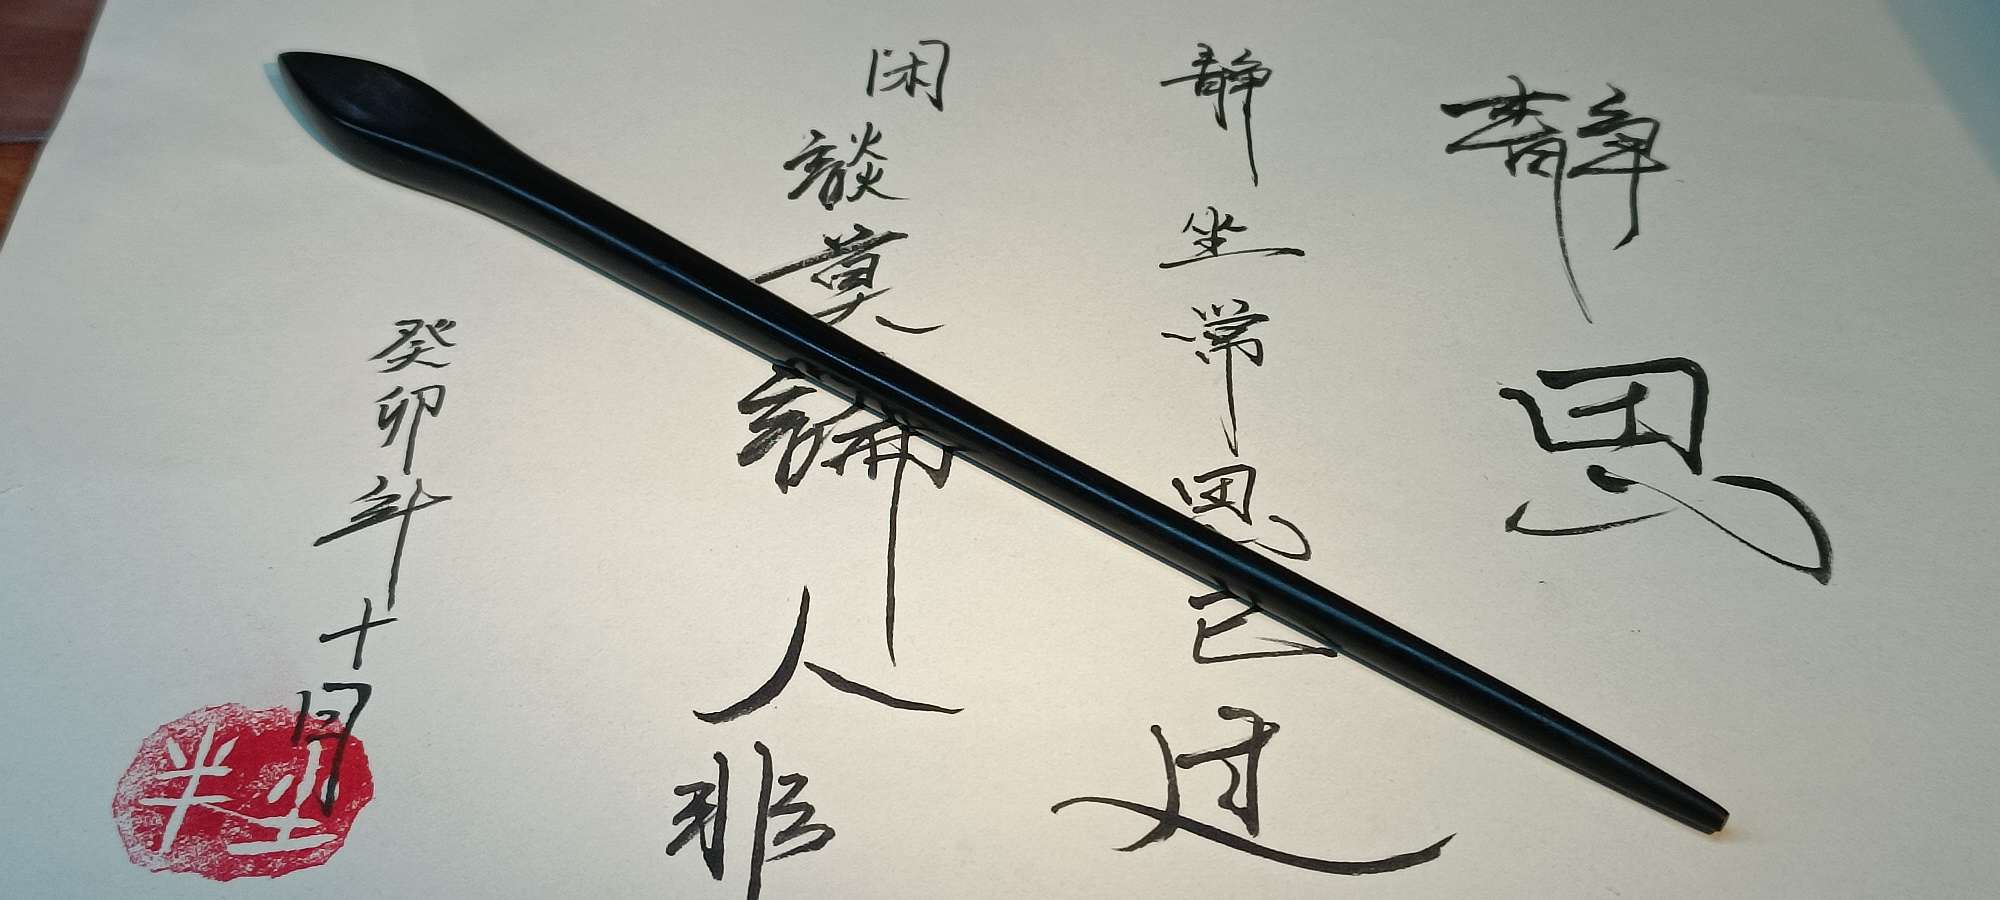 静思
静坐常思己过
闲談莫論人非
癸卯年十月
半尘